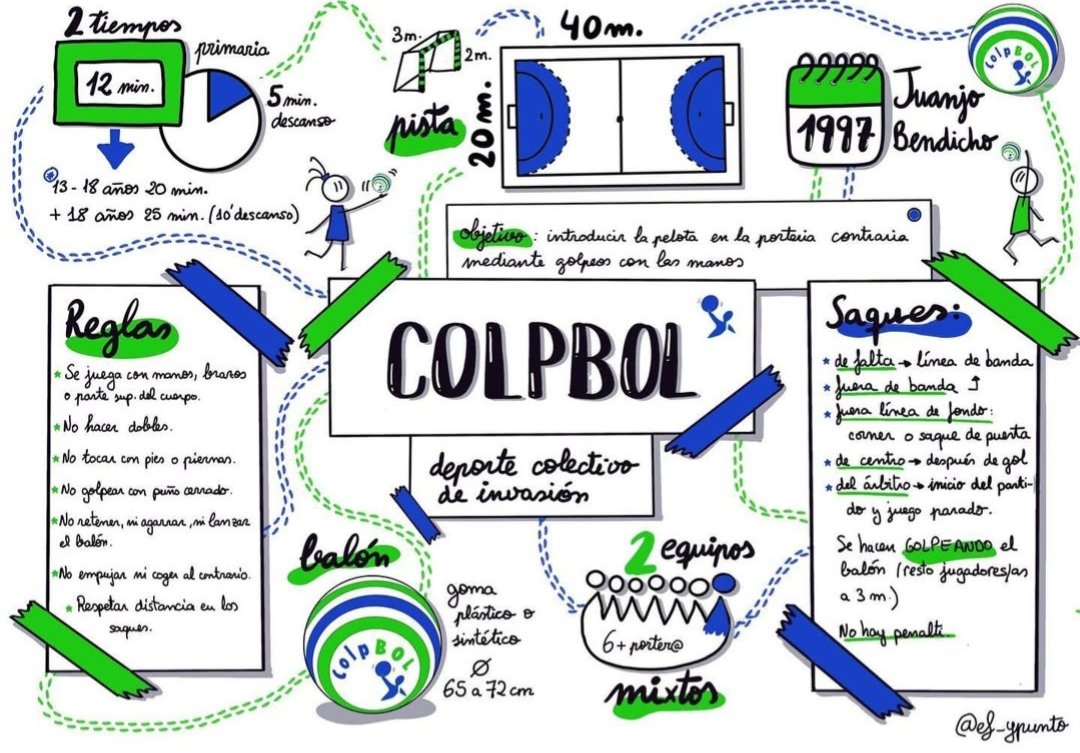 2 tiempos
12 min.
primaria
5 min.
descanso
13-18 años 20 min.
+ 18 años 25 min. (10' descanso)
3m.
2m.
pista
40 m.
20 m.
1997
Juanjo
Bendicho
colpBOL
objetivo: introducir la pelota en la portería contraria
mediante golpeos con las manos
COLPBOL
deporte colectivo
de invasión
Reglas
* Se juega con manos, brazos
o parte sup. del cuerpo.
* No hacer dobles.
* No tocar con pies o piernas.
* No golpear con puño cerrado.
* No retener, ni agarrar, ni lanzar
el balón.
* No empujar ni coger al contrario.
* Respetar distancia en los
saques.
balón
colpBOL
goma
plástico o
sintético
Ø
65 a 72 cm
2 equipos
6 + porter@
mixtos
Saques:
* de falta → línea de banda
* fuera de banda ↑
* fuera línea de fondo:
corner o saque de puerta
* de centro → después de gol
* del árbitro → inicio del parti-
do y juego parado.
Se hacen GOLPEANDO el
balón (resto jugadores/as
a 3 m.)
No hay penalti.
@ef_ypunto